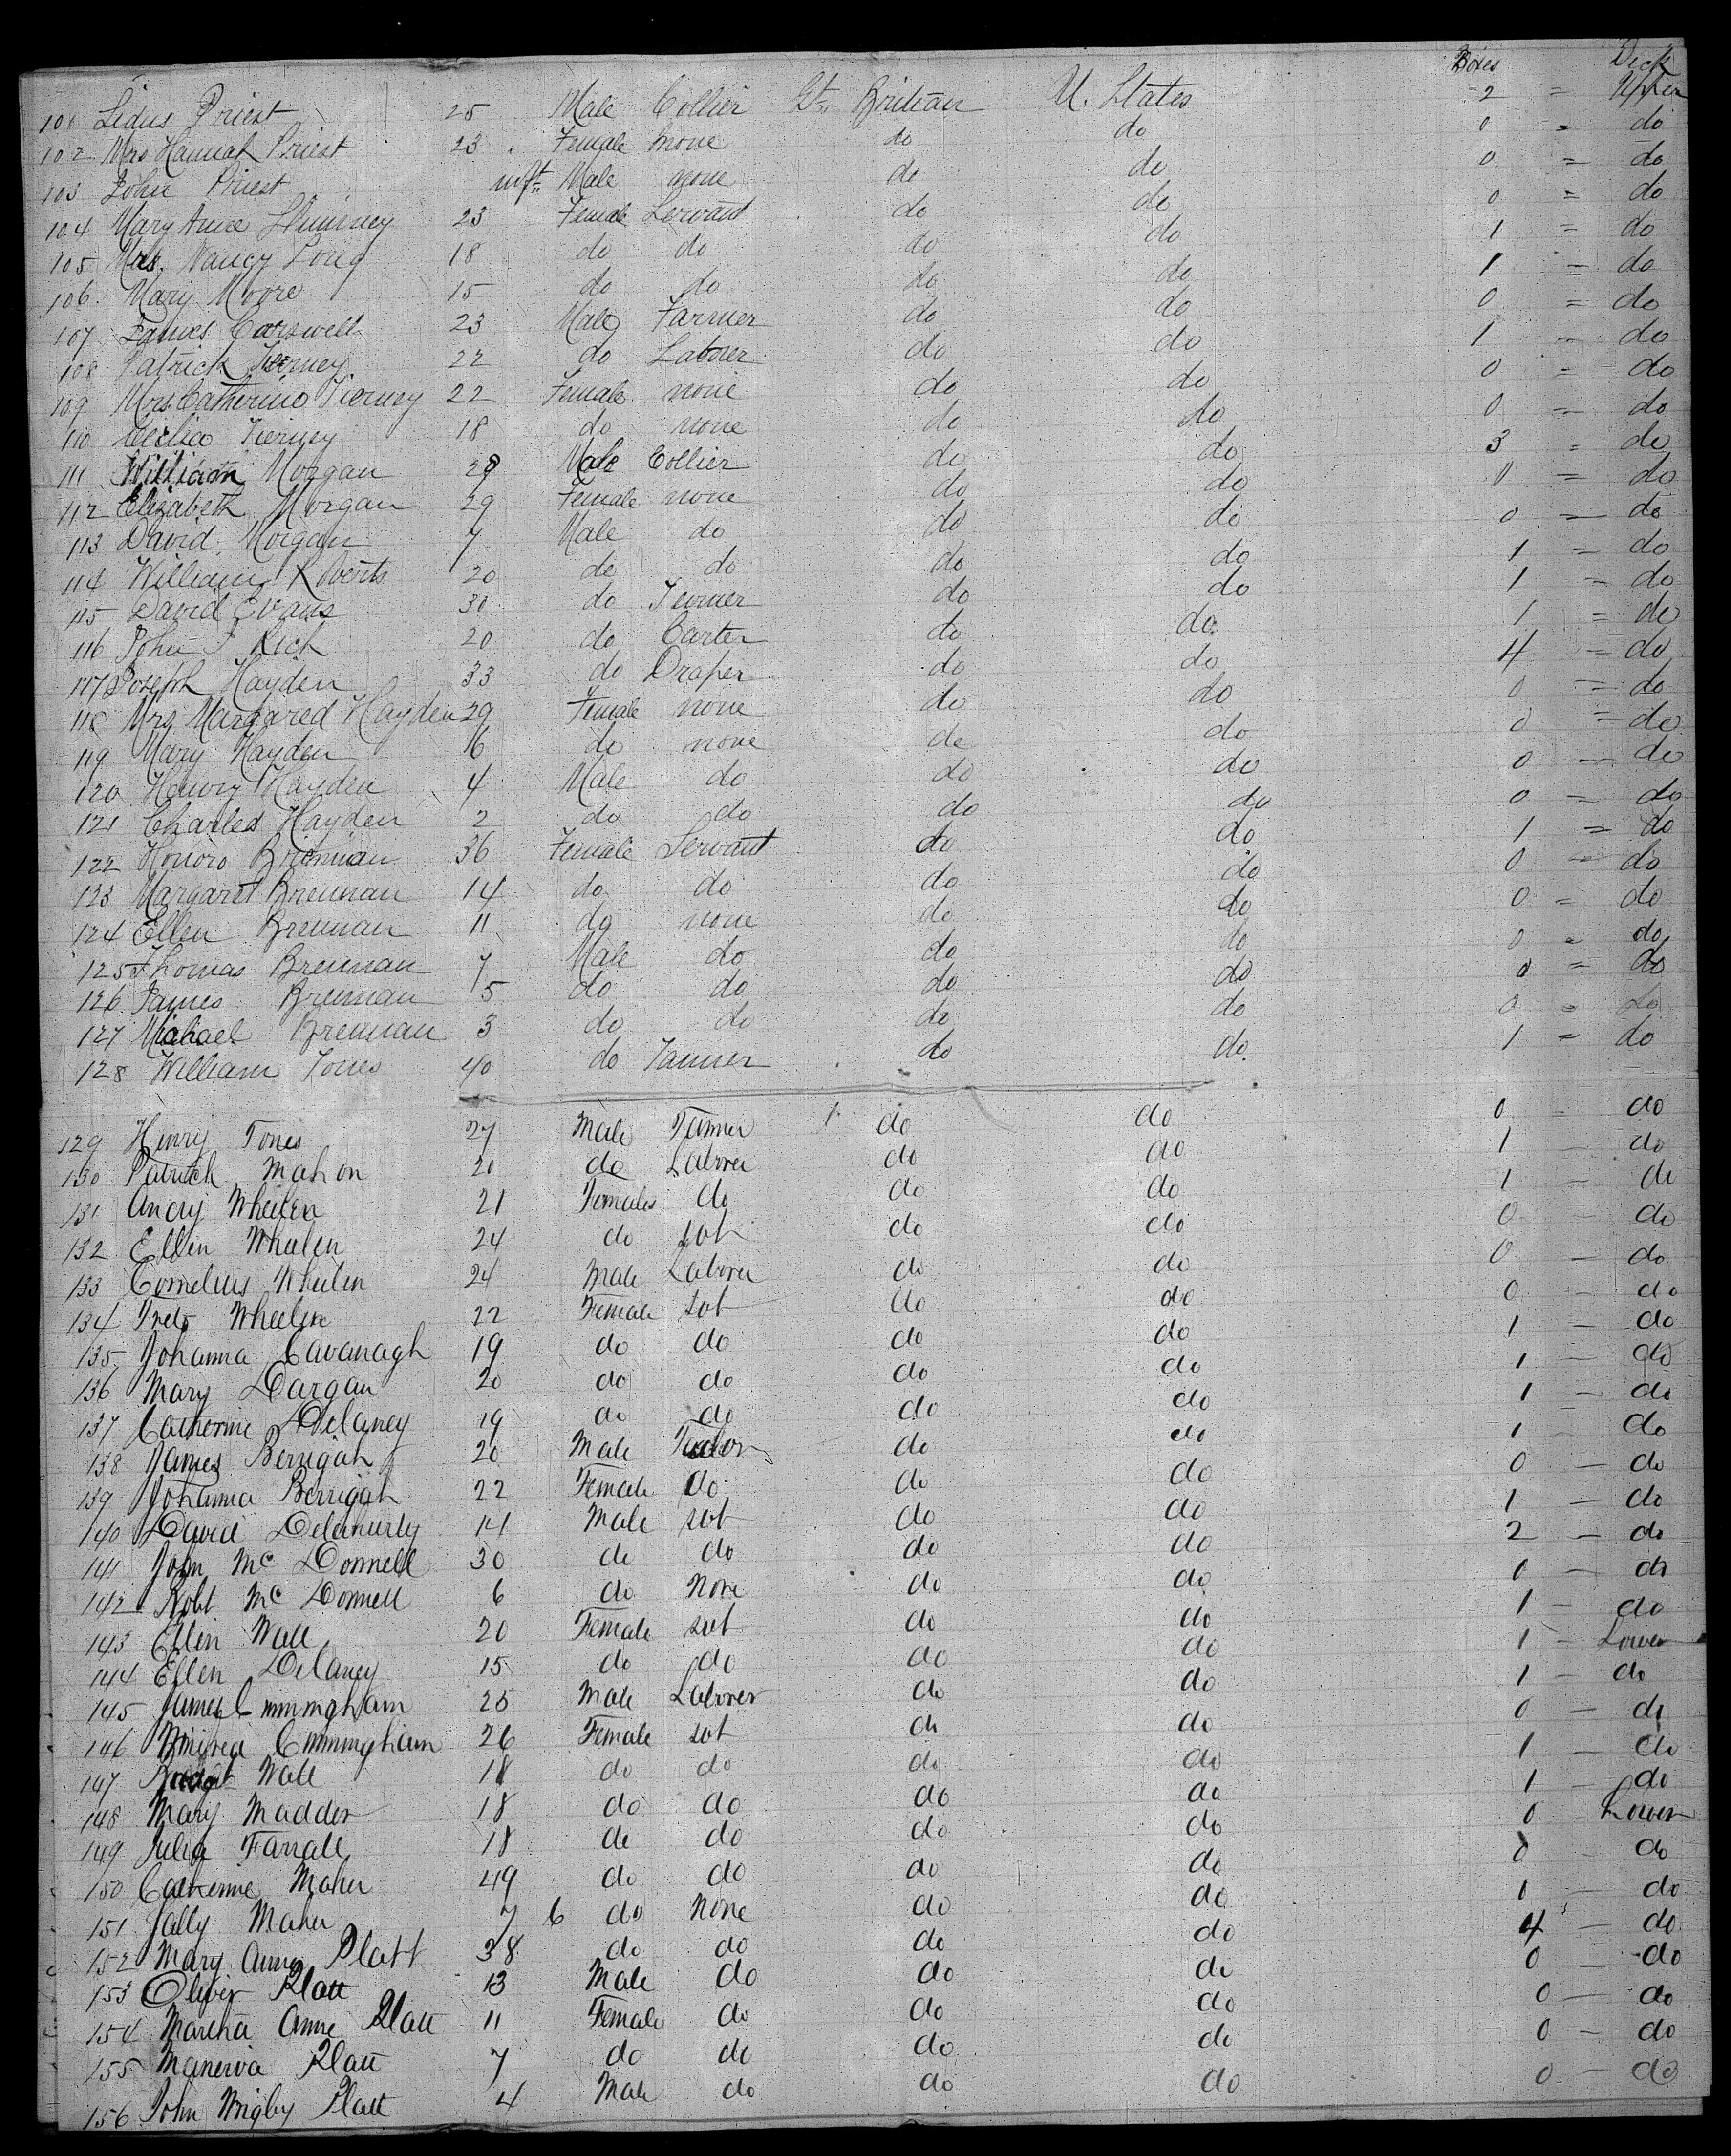 Boxes Deck
101 Lidus Priest 25 Male Collier Gt. Britian U. States 2 = Upper
102 Mrs Hannah Priest 23 Female none do do 0 = do
103 John Priest inft Male none do do 0 = do
104 Mary Anne 23 Female Servant do do 0 = do
105 Mrs. Nancy Long 18 do do do do 1 = do
106 Mary Moore 15 do do do do 1 = do
107 James Carswell 23 Male Farmer do do 0 = do
108 Patrick Tierney 22 do Laborer do do 1 = do
109 Mrs. Catherine Tierney 22 Female none do do 0 = do
110 Cecilia Tierney 18 do none do do 0 = do
111 William Morgan 29 Male Collier do do 3 = do
112 Elizabeth Morgan 29 Female none do do 0 = do
113 David Morgan 7 Male do do do 0 = do
114 William Roberts 20 do do do do 1 = do
115 David Evans 30 do do do 1 = do
116 John Rich 20 do Carter do do 1 = do
117 Joseph Hayden 33 do Draper do do 4 = do
118 Mrs Margared Hayden 29 Female none do do 0 = do
119 Mary Hayden 6 do none do do 0 = do
120 Henry Hayden 4 Male do do do 0 = do
121 Charles Hayden 2 do do do do 0 = do
122 Honoro Brennan 36 Female Servant do do 1 = do
123 Margaret Brennan 14 do do do do 0 = do
124 Ellen Brennan 11 do none do do 0 = do
125 Thomas Brennan 7 Male do do do 0 = do
126 James Brennan 5 do do do do 0 = do
127 Michael Brennan 3 do do do do 0 = do
128 William Jones 40 do Tanner do do 1 = do
129 Henry Jones 27 Male Tanner do do 0 = do
130 Patrick Mahon 20 do Laborer do do 1 - do
131 Wheilen 21 Females do do do 1 - do
132 Ellin Whelen 24 do do do 0 - do
133 Cornelius Whelen 24 Male Laborer do do 0 - do
134 Whelen 22 Female do do 0 - do
135 Johanna Cavanagh 19 do do do do 1 - do
136 Mary Dargan 20 do do do do 1 - do
137 Catherine Delaney 19 do do do do 1 - do
138 James Berrigan 20 Male do do 1 - do
139 Johanna Berrigan 22 Female do do do 0 - do
140 David Delahunty 14 Male do do 1 - do
141 John McDonnell 30 do do do do 2 - do
142 Robt McDonnell 6 do None do do 0 - do
143 Ellin Wall 20 Female do do 1 - do
144 Ellen Delaney 15 do do do do 1 - Lower
145 James Cunningham 25 Male Laborer do do 1 - do
146 Cunningham 26 Female do do 0 - do
147 Bridget Wall 18 do do do do 1 - do
148 Mary Madden 18 do do do do 1 - do
149 Julia Farrall 18 do do do do 0 Lower
150 Catherine Maher 49 do do do do 0 - do
151 Sally Maher 7 6 do None do do 0 - do
152 Mary Anne Platt 38 do do do do 4 - do
153 Oliver Platt 13 Male do do do 0 - do
154 Martha Anne Platt 11 Female do do do 0 - do
155 Manerva Platt 7 do do do do 0 - do
156 John Wrigley Platt 4 Male do do do 0 - do